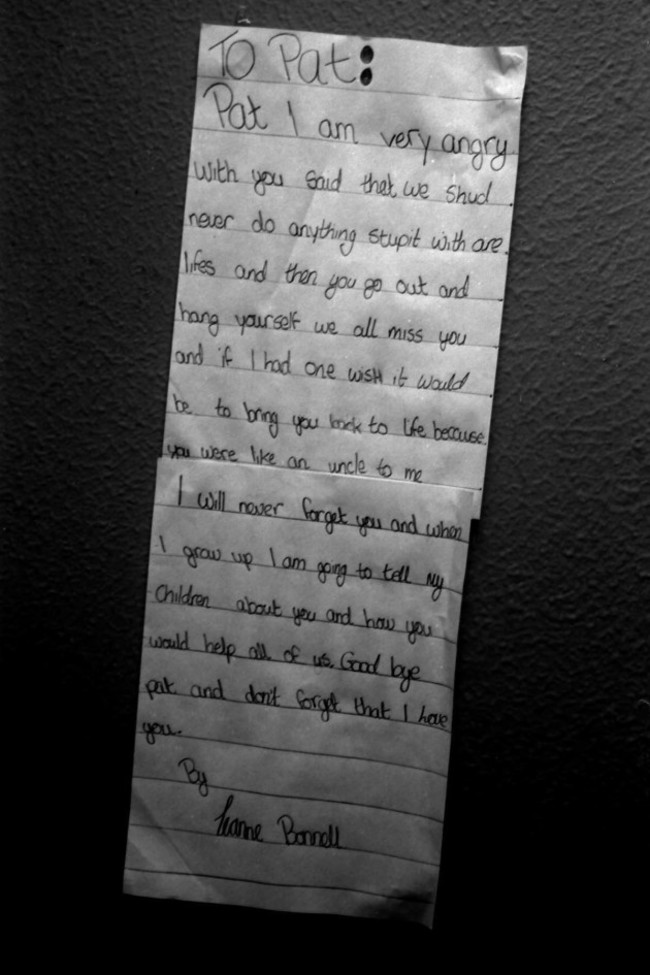 To Pat:
Pat I am very angry
with you said that we shud
never do anything stupit with are
lifes and then you go out and
hang yourself we all miss you
and if I had one wish it would
be to bring you back to life because
you were like an uncle to me
I will never forget you and when
I grow up I am going to tell my
Children about you and how you
would help all of us. Good bye
pat and don't forget that I love
you.
By